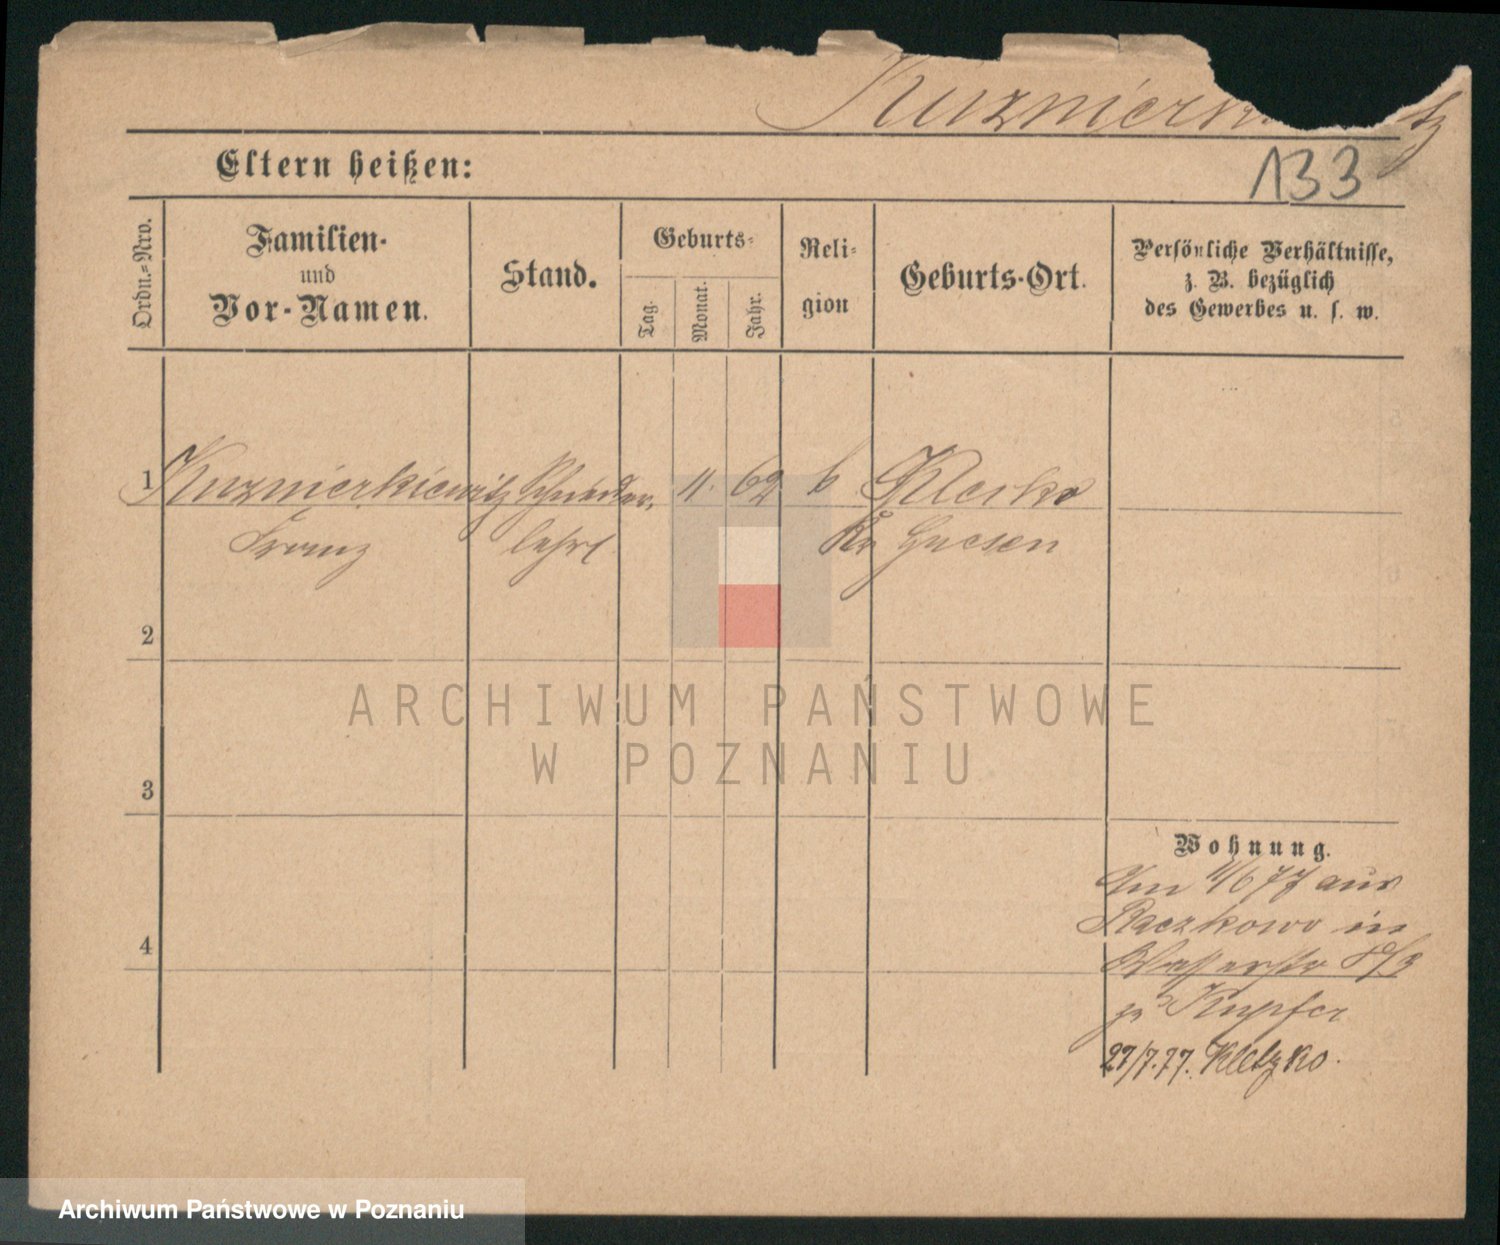 Kuznierk tz
133
Eltern heißen:
Ordn.-Nro.
Familien-
und
Vor-Namen.
Stand.
Geburts-
Tag.
Monat.
Jahr.
Reli-
gion
Geburts-Ort.
Persönliche Verhältnisse,
z. B. bezüglich
des Gewerbes u. s. w.
1 Kuznierkiewitz Schneider 11. 62 k Klesko
Franz lehrl Kr Gnesen
2
ARCHIWUM PAŃSTWOWE
W POZNANIU
3
Wohnung.
Am 4/6 77 aus
Raczkowo in
4
Wasserstr 8/9
Kupfer
27/7.77. Kletzko.
Archiwum Państwowe w Poznaniu